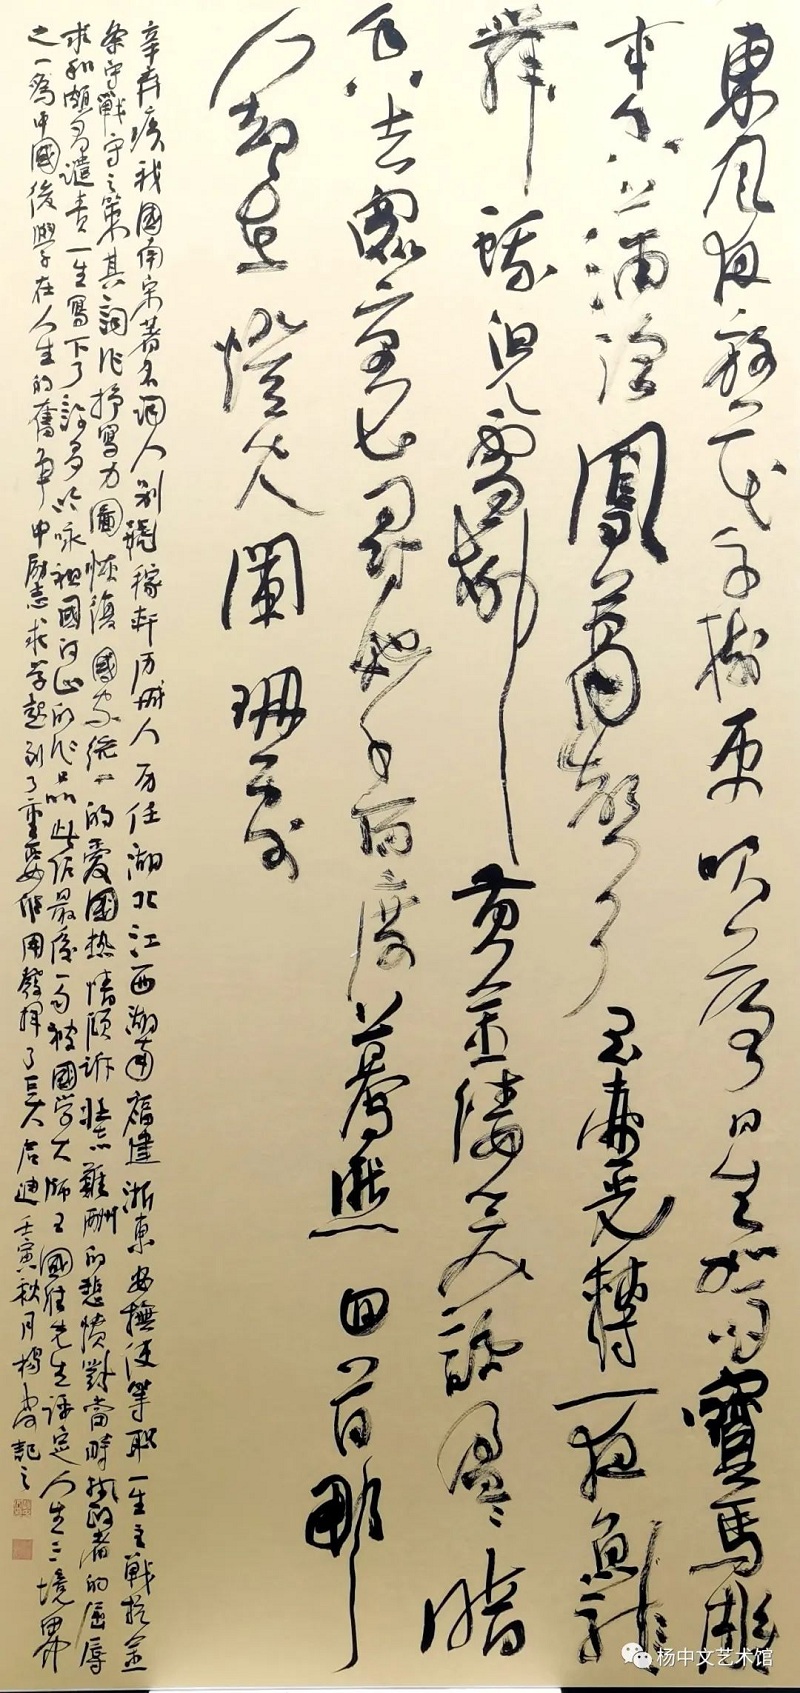 東風夜放花千樹更吹落星如雨寶馬雕
車香滿路鳳簫聲動玉壺光轉一夜魚龍
舞蛾兒雪柳黃金縷笑語盈盈暗
香去眾裏尋他千百度驀然回首那
人卻在燈火闌珊處
辛弃疾我國南宋著名詞人别號稼軒历城人历任湖北江西湖南福建浙東安撫使等职一生主戰抗金
戰守之策其詞作抒寫力圖恢復國家統一的愛國热情傾訴壯志難酬的悲憤對當時執政者的屈辱
求和頗多譴責一生寫下了許多吟咏祖國河山的作品此作最後一句被國学大師王國維先生评定人生三境界
之一爲中國後學在人生的奮争中勵志求学起到了重要作用發揮了巨大启迪壬寅秋月楊中文記之
杨中文艺术馆